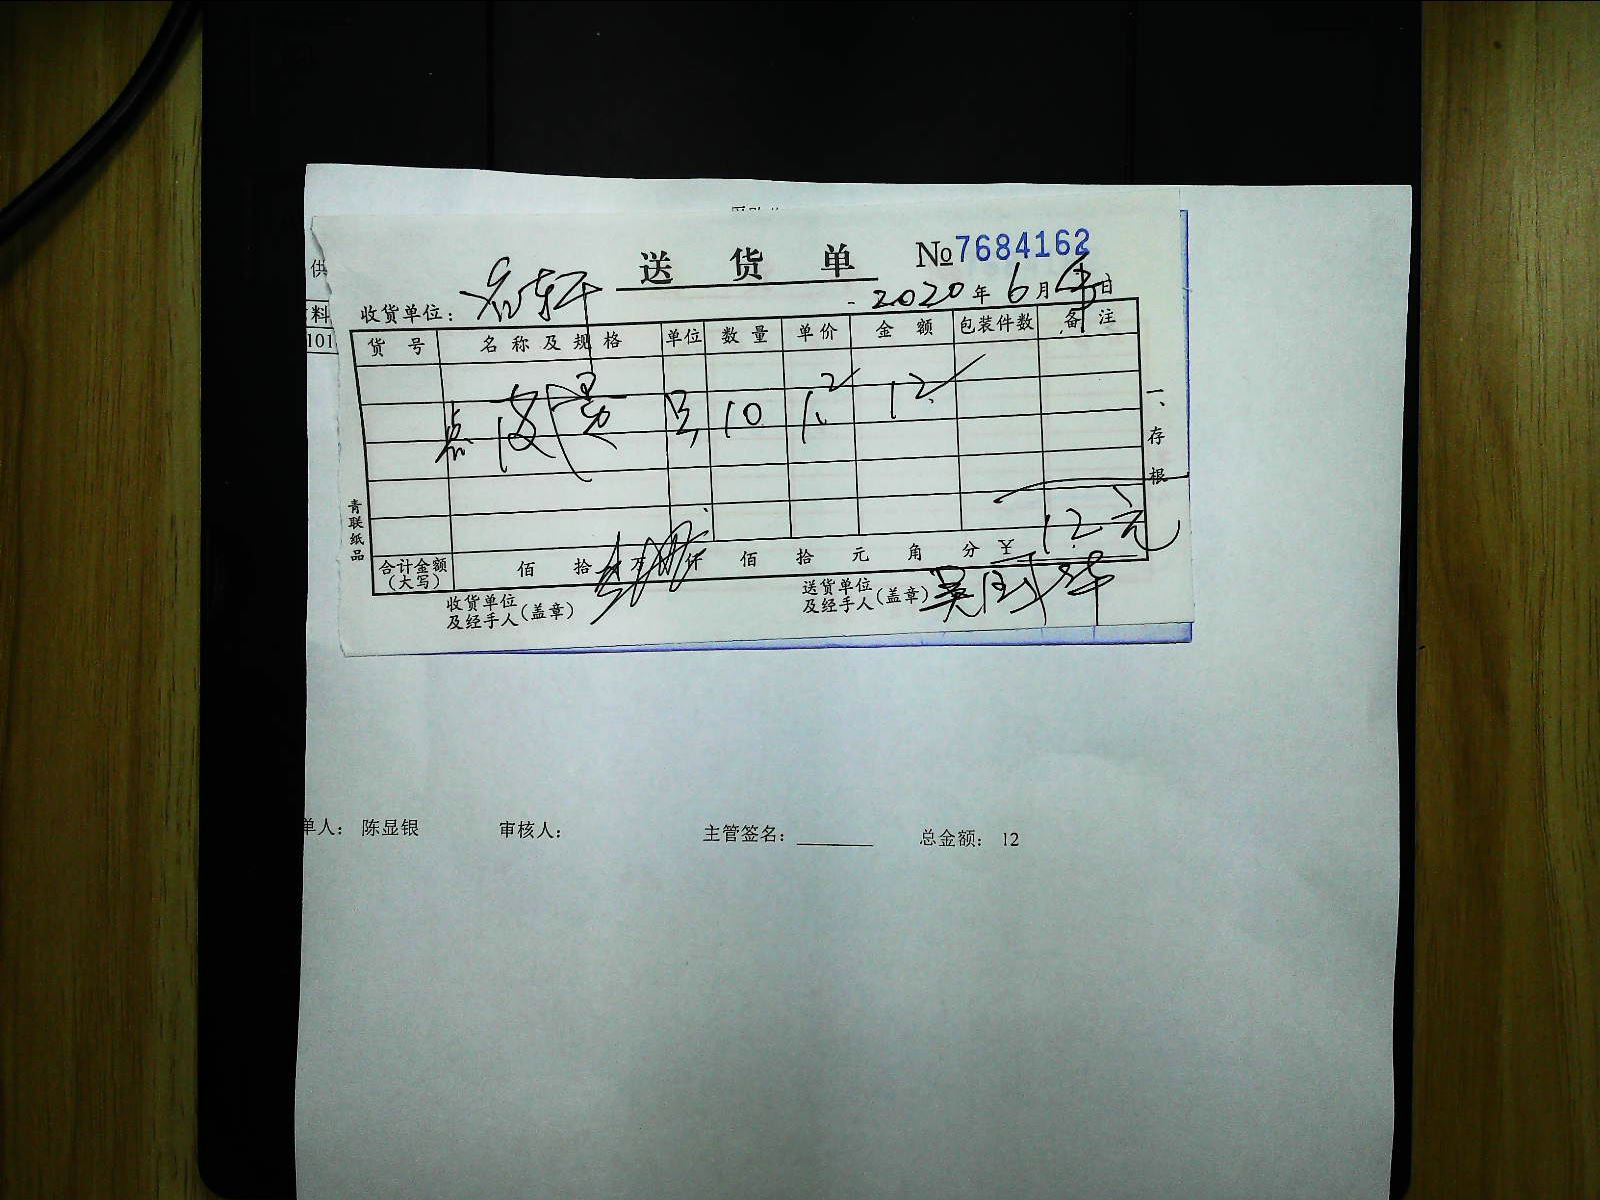 供
送 货 单 №7684162
收货单位：
2020年6月 日
料
101
货 号 名 称 及 规 格 单位 数 量 单价 金 额 包装件数 备 注
10 1.2 12
一、存根
青联纸品
12元
合计金额（大写） 佰 拾 万 仟 佰 拾 元 角 分 ¥
收货单位及经手人（盖章）
送货单位及经手人（盖章）
单人： 陈显银 审核人： 主管签名： 总金额： 12